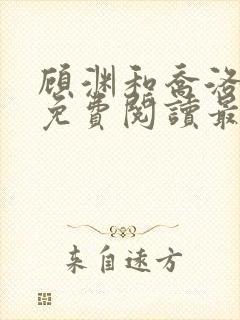 顾渊和乔洛
免费閱讀最
来自远方